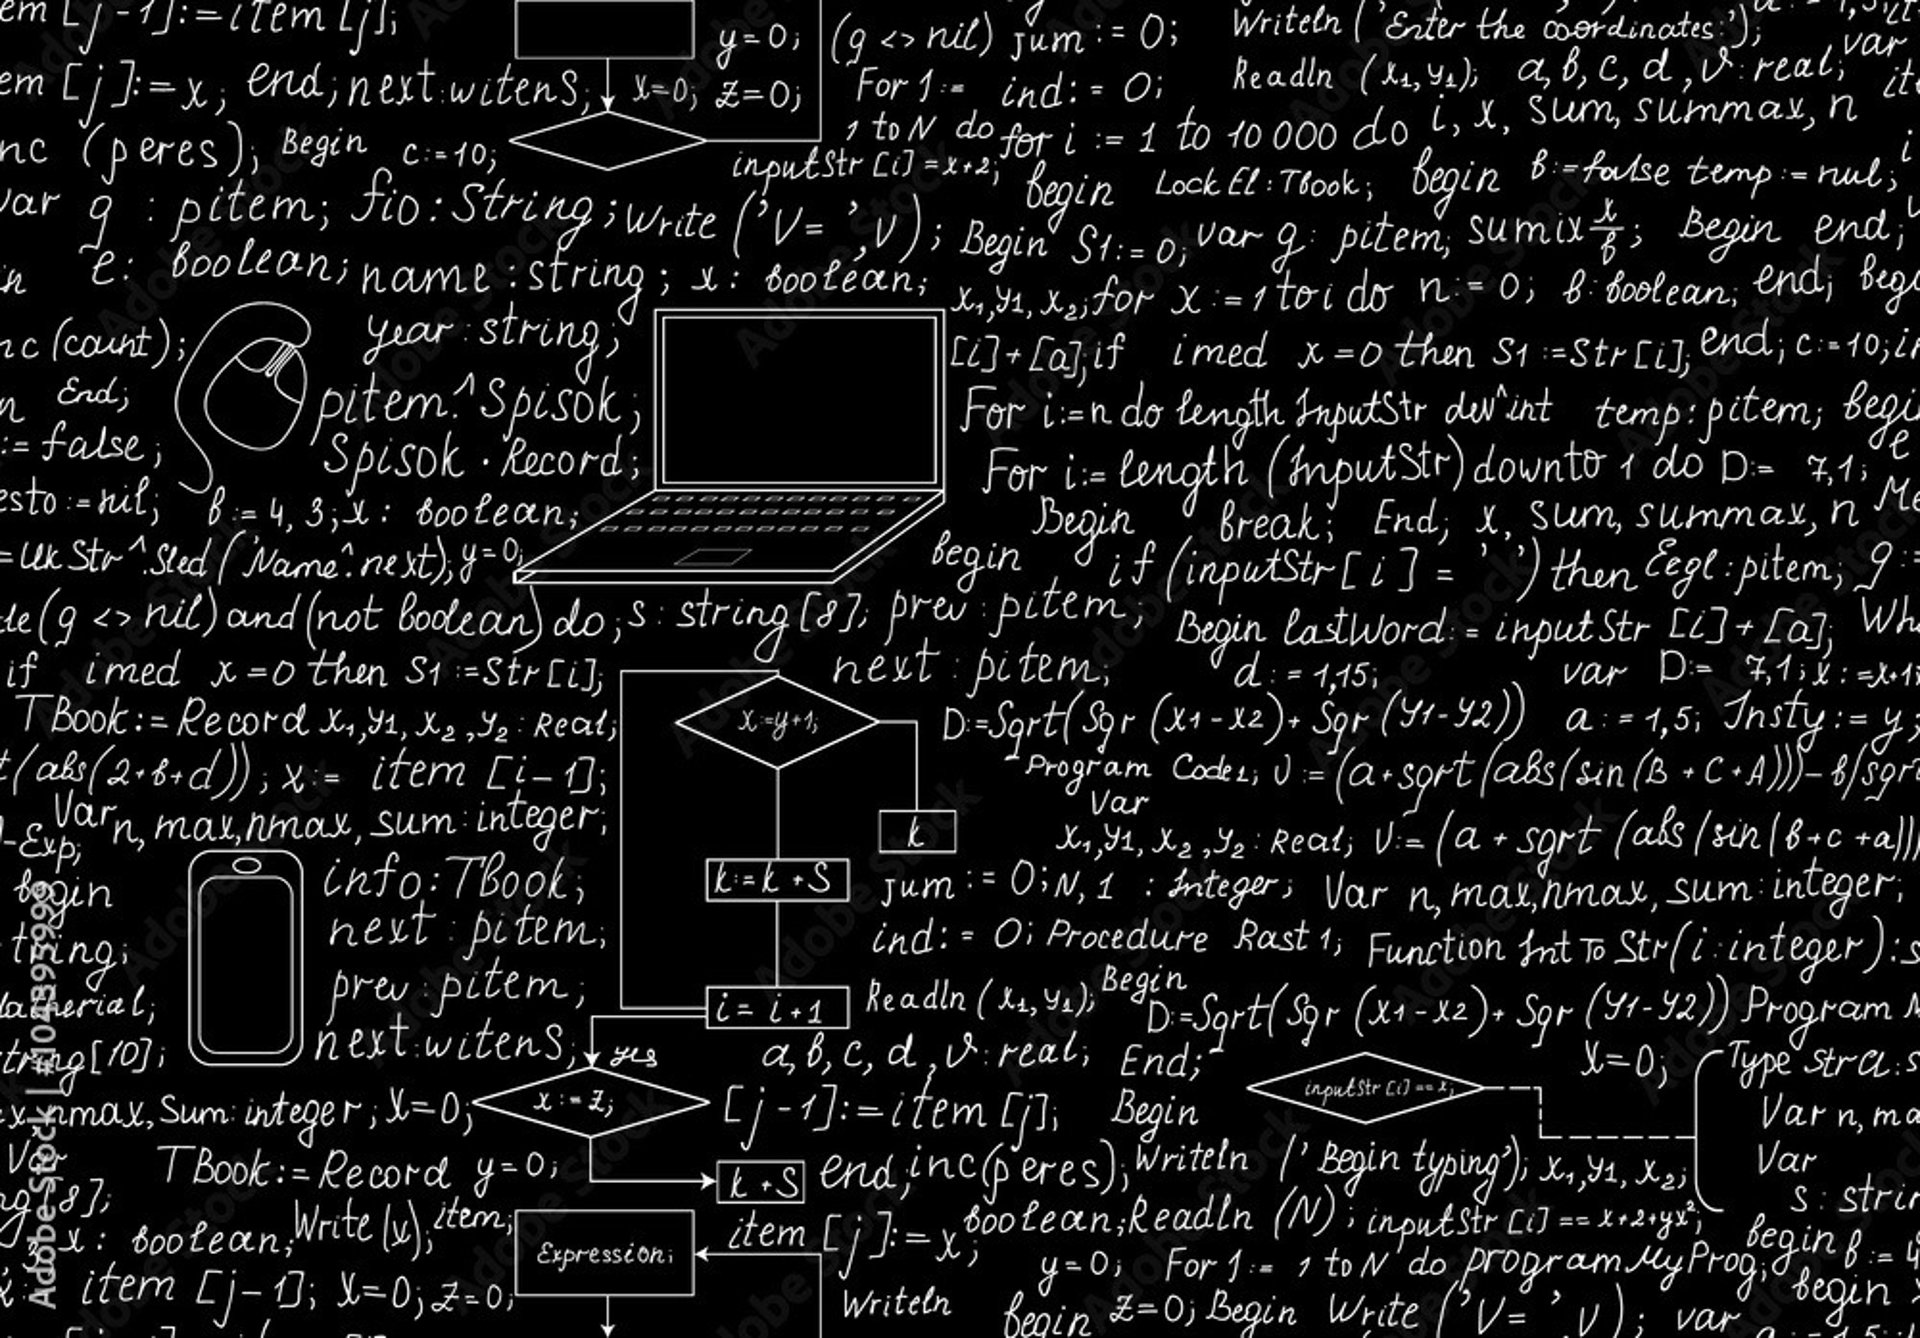 em [j-1]:=item [j];
em [j]:=x; end; next:witenS;
nc (peres); Begin c:=10;
var g : pitem; fio:String; Write ('V= ',v);
e: boolean; name:string; x: boolean;
y=0;
x=0; z=0;
(g <> nil) jum := 0;
For J := ind: = 0;
1 to N do for i := 1 to 10 000 do
inputStr [i] =x+2; begin
Writeln ('Enter the coordinates:');
Readln (x1, y1); a, b, c, d, v: real;
var
i, x, sum, summax, n
Lock El:TBook; begin b:=false temp:=nul;
Begin S1:=0; var g: pitem; sumix x/b; Begin end;
x1, y1, x2; for x:=1 to i do n:=0; b:boolean; end; bega
nc (count); year:string;
[i]+[a]; if imed x=0 then S1:=Str[i]; end; c:=10; in
End; pitem.^Spisok;
For i:=n do length InputStr dev^int temp:pitem; begin
:= false; Spisok . Record;
For i:= length (InputStr) downto 1 do D:= 7,1;
esto:=nil; b:=4, 3; x: boolean;
Begin break; End; x, sum, summax, n
=Uk Str^.Sled ('Name^.next); y=0;
begin if (inputStr [i] = ' ') then Eegl:pitem; g :=
le (g <> nil) and (not boolean) do; s: string [8]; prev: pitem;
Begin lastWord:= inputStr [i]+[a]; Whi
if imed x=0 then S1:=Str[i]; next: pitem;
d:=1,15; var D:= 7,1; x:=x+1;
TBook:=Record x1, y1, x2, y2: Real;
x:=y+1;
D:=Sqrt(Sqr (x1-x2)+ Sqr (y1-y2)) a:=1,5; Insty:=y;
t (abs(2+b+d)); x:= item [i-1];
Program Code1; U:=(a+sqrt (abs(sin(B+C+A)))-b/sqrt
Var n, max, nmax, sum: integer;
Var
k
-Exp;
x1, y1, x2, y2: Real; U:= (a+sqrt (abs (sin(b+c+a)))
begin info:TBook;
k:=k+S
jum:=0; N, 1 : Integer; Var n, max, nmax, sum: integer;
tring; next: pitem;
ind:=0; Procedure Rast 1; Function Int To Str(i:integer):s
prev: pitem;
i= i+1
Readln (x1, y1); Begin
D:=Sqrt(Sqr (x1-x2)+ Sqr (y1-y2)) Program
tring [10]; next:witenS; yes
a, b, c, d, v: real; End; x=0; Type stra:s
x, nmax, Sum: integer; x=0;
x:=z;
[j-1]:=item [j]; Begin
inputStr [i] == x;
Var n, ma
Var
TBook:=Record y=0;
k+S
end; inc(peres); Writeln ('Begin typing'); x1, y1, x2;
Var
ng [8]; Write (v); item;
s: strin
x: boolean;
Expression;
item [j]:=x; boolean; Readln (N); inputStr [i] == x+2+yx²;
begin b:=4
item [j-1]; x=0; z=0;
y=0; For J:= 1 to N do program MyProg;
begin
Writeln begin z=0; Begin Write ('V= ', v); var
Adobe Stock | #1043953999